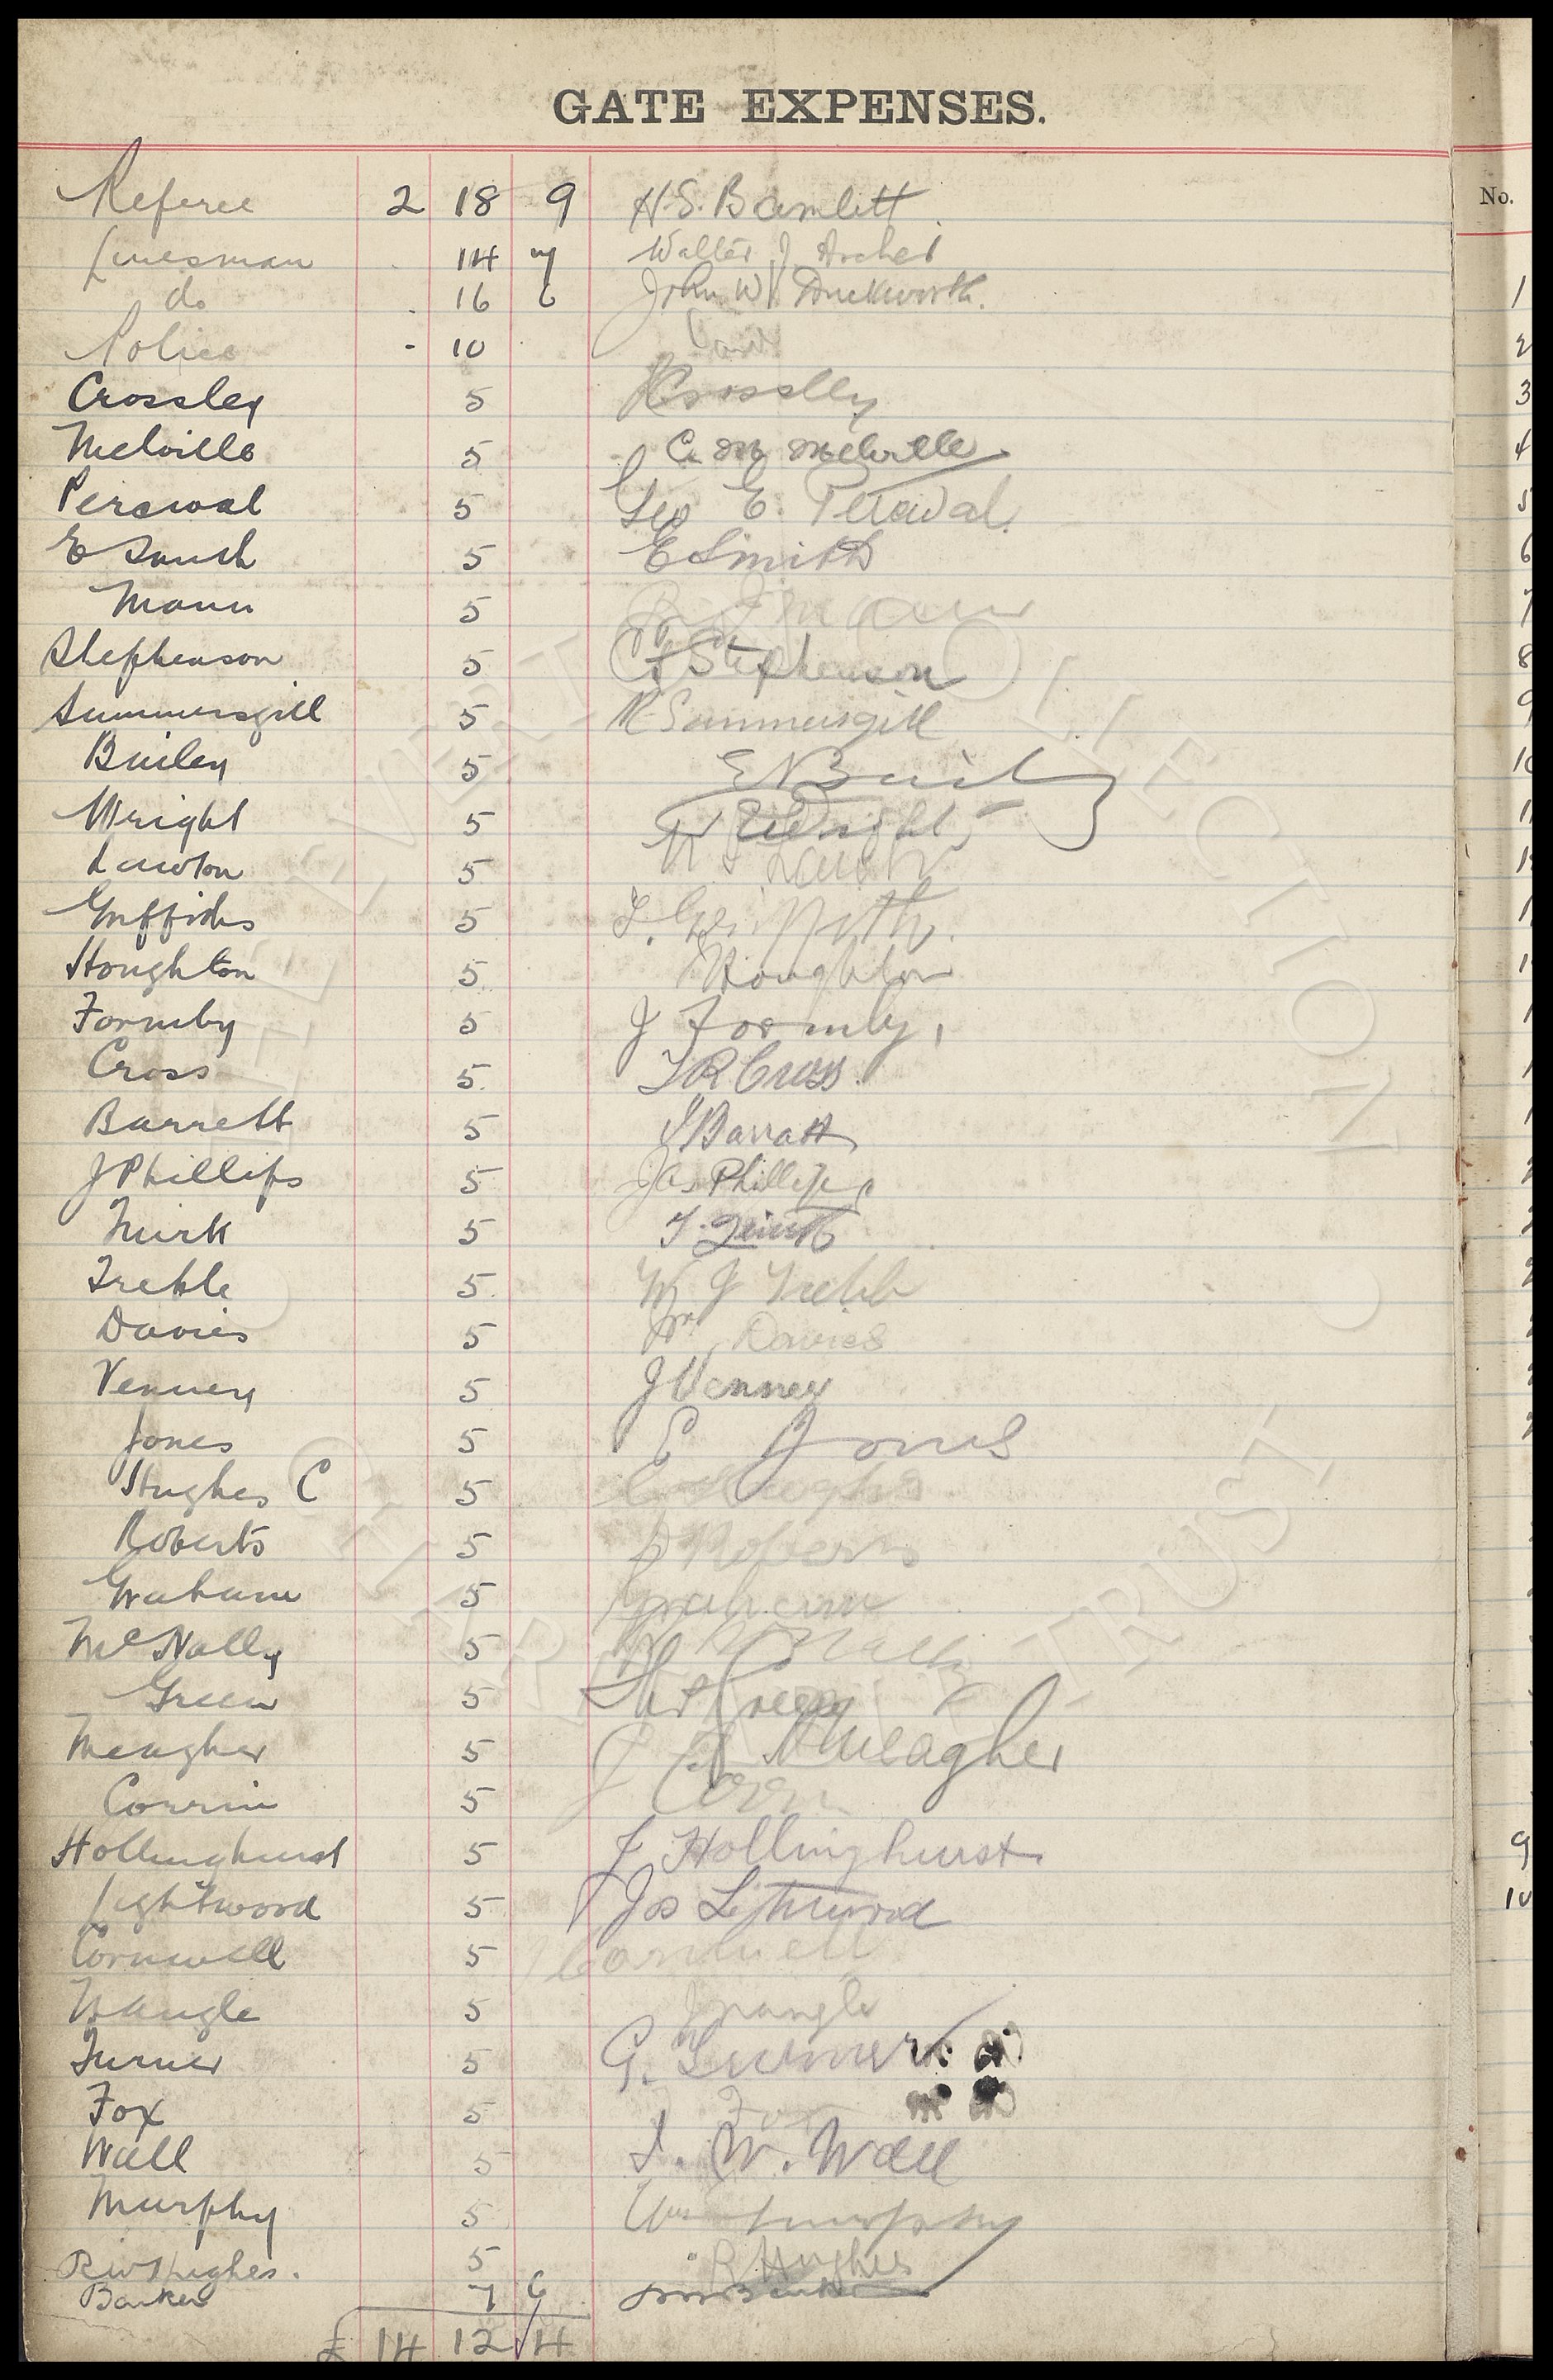 GATE EXPENSES.
Referee 2 18 9 H.S. Bamlett
No.
Linesman . 14 7 Walter J Archer
do . 16 6 John W Duckworth. 1
Police - 10 . 2
Crossley 5 Crosslly 3
Melville 5 C. M Melville 4
Percival 5 Geo E. Percival. 5
E Smith 5 E Smith 6
Mann 5 7
Stephenson 5 Stephenson 8
Summersgill 5 R Summersgill 9
Bailey 5 E N Baily 10
Wright 5 W E Wright
Lawton 5
Griffiths 5 T. Griffith.
Houghton 5 Houghton
Formby 5 J Formby,
Cross 5 T R Cross.
Barrett 5 J Barratt
J Phillips 5 Jas Phillips
5 T.
Treble 5 W J
Davies 5 Wm Davies
Venney 5 J Venney
Jones 5 E Jones
Hughes C 5 C Hughes
Roberts 5 Roberts
Graham 5 Graham
McNally 5
Green 5 Thos Green
Meagher 5 Meagher
Corrin 5
Hollinghurst 5 F Hollinghurst 9
Lightwood 5 Jos 10
Cornwell 5 Cornwell
Nangle 5 J Nangle
Turner 5 G. Turner
Fox 5 Fox
Wall 5 T. W. Wall
Murphy 5 Wm Murphy
R W Hughes. 5 R Hughes
Barker 7 6
£ 14 12 4
THE EVERTON COLLECTION
CHARITABLE TRUST